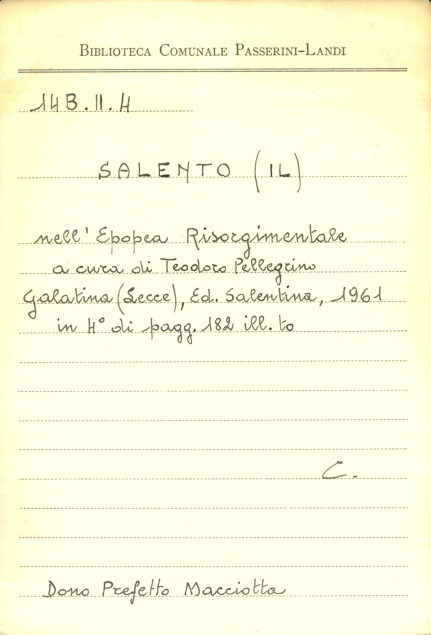 BIBLIOTECA COMUNALE PASSERINI-LANDI
14B.II.4
SALENTO (IL)
nell' Epopea Risorgimentale
a cura di Teodoro Pellegrino
Galatina (Lecce), Ed. Salentina, 1961
in 4° di pagg. 182 ill. to
C.
Dono Prefetto Macciotta